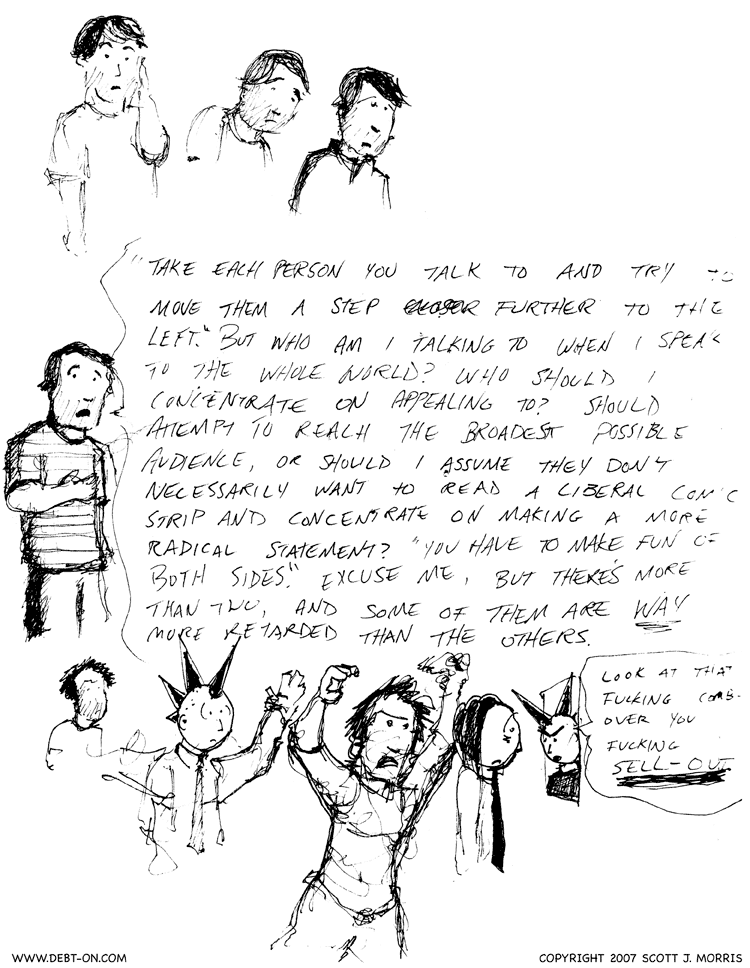 "TAKE EACH PERSON YOU TALK TO AND TRY TO
MOVE THEM A STEP CLOSER FURTHER TO THE
LEFT." BUT WHO AM I TALKING TO WHEN I SPEAK
TO THE WHOLE WORLD? WHO SHOULD I
CONCENTRATE ON APPEALING TO? SHOULD
ATTEMPT TO REACH THE BROADEST POSSIBLE
AUDIENCE, OR SHOULD I ASSUME THEY DON'T
NECESSARILY WANT TO READ A LIBERAL COMIC
STRIP AND CONCENTRATE ON MAKING A MORE
RADICAL STATEMENT? "YOU HAVE TO MAKE FUN OF
BOTH SIDES." EXCUSE ME, BUT THERE'S MORE
THAN TWO, AND SOME OF THEM ARE WAY
MORE RETARDED THAN THE OTHERS.
LOOK AT THAT
FUCKING COMB-
OVER YOU
FUCKING
SELL-OUT
WWW.DEBT-ON.COM
COPYRIGHT 2007 SCOTT J. MORRIS